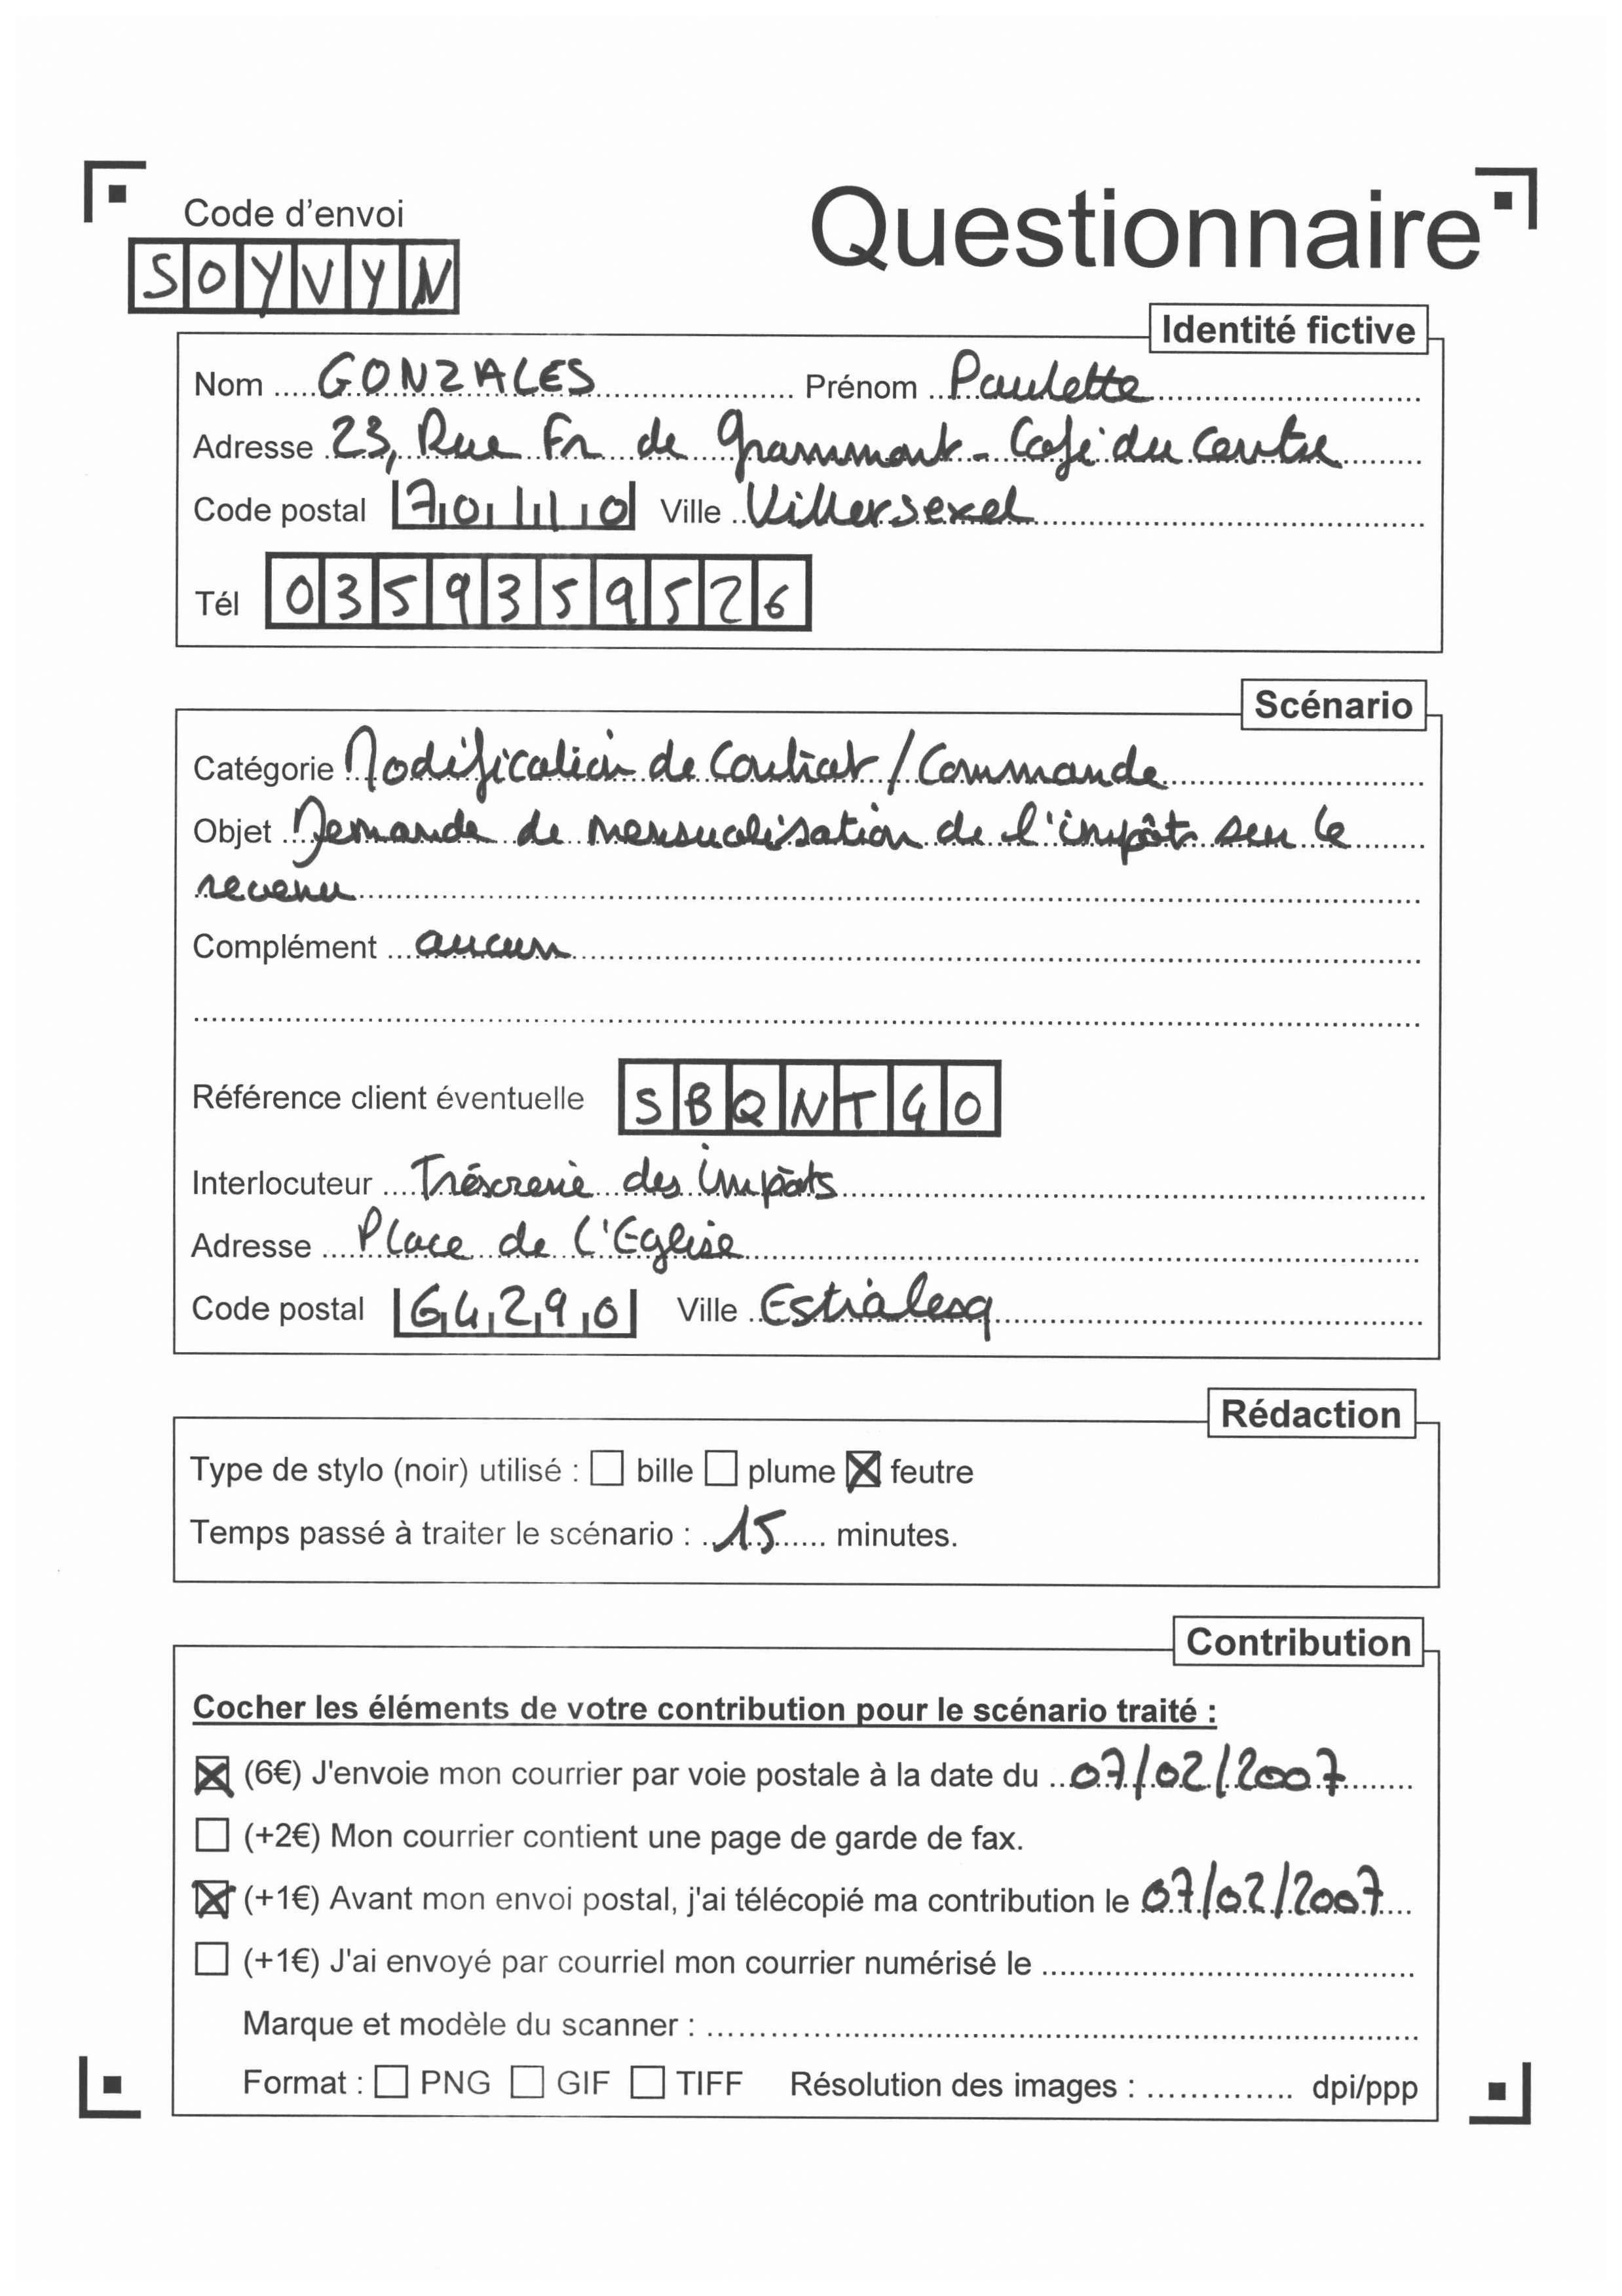 Code d'envoi
SOYVYN
Questionnaire
Identité fictive
Nom GONZALES Prénom Paulette
Adresse 23, Rue Fr de Grammont - Café du Centre
Code postal 70110 Ville Villersexel
Tél 0359359526
Scénario
Catégorie Modification de Contrat / Commande
Objet Demande de mensualisation de l'impôts sur le
revenu
Complément aucun
Référence client éventuelle SBQNT40
Interlocuteur Trésorerie des impôts
Adresse Place de l'Eglise
Code postal 64290 Ville Estialesq
Rédaction
Type de stylo (noir) utilisé : bille plume feutre
Temps passé à traiter le scénario : 15 minutes.
Contribution
Cocher les éléments de votre contribution pour le scénario traité :
(6€) J'envoie mon courrier par voie postale à la date du 07/02/2007
(+2€) Mon courrier contient une page de garde de fax.
(+1€) Avant mon envoi postal, j'ai télécopié ma contribution le 07/02/2007
(+1€) J'ai envoyé par courriel mon courrier numérisé le
Marque et modèle du scanner :
Format : PNG GIF TIFF Résolution des images : dpi/ppp